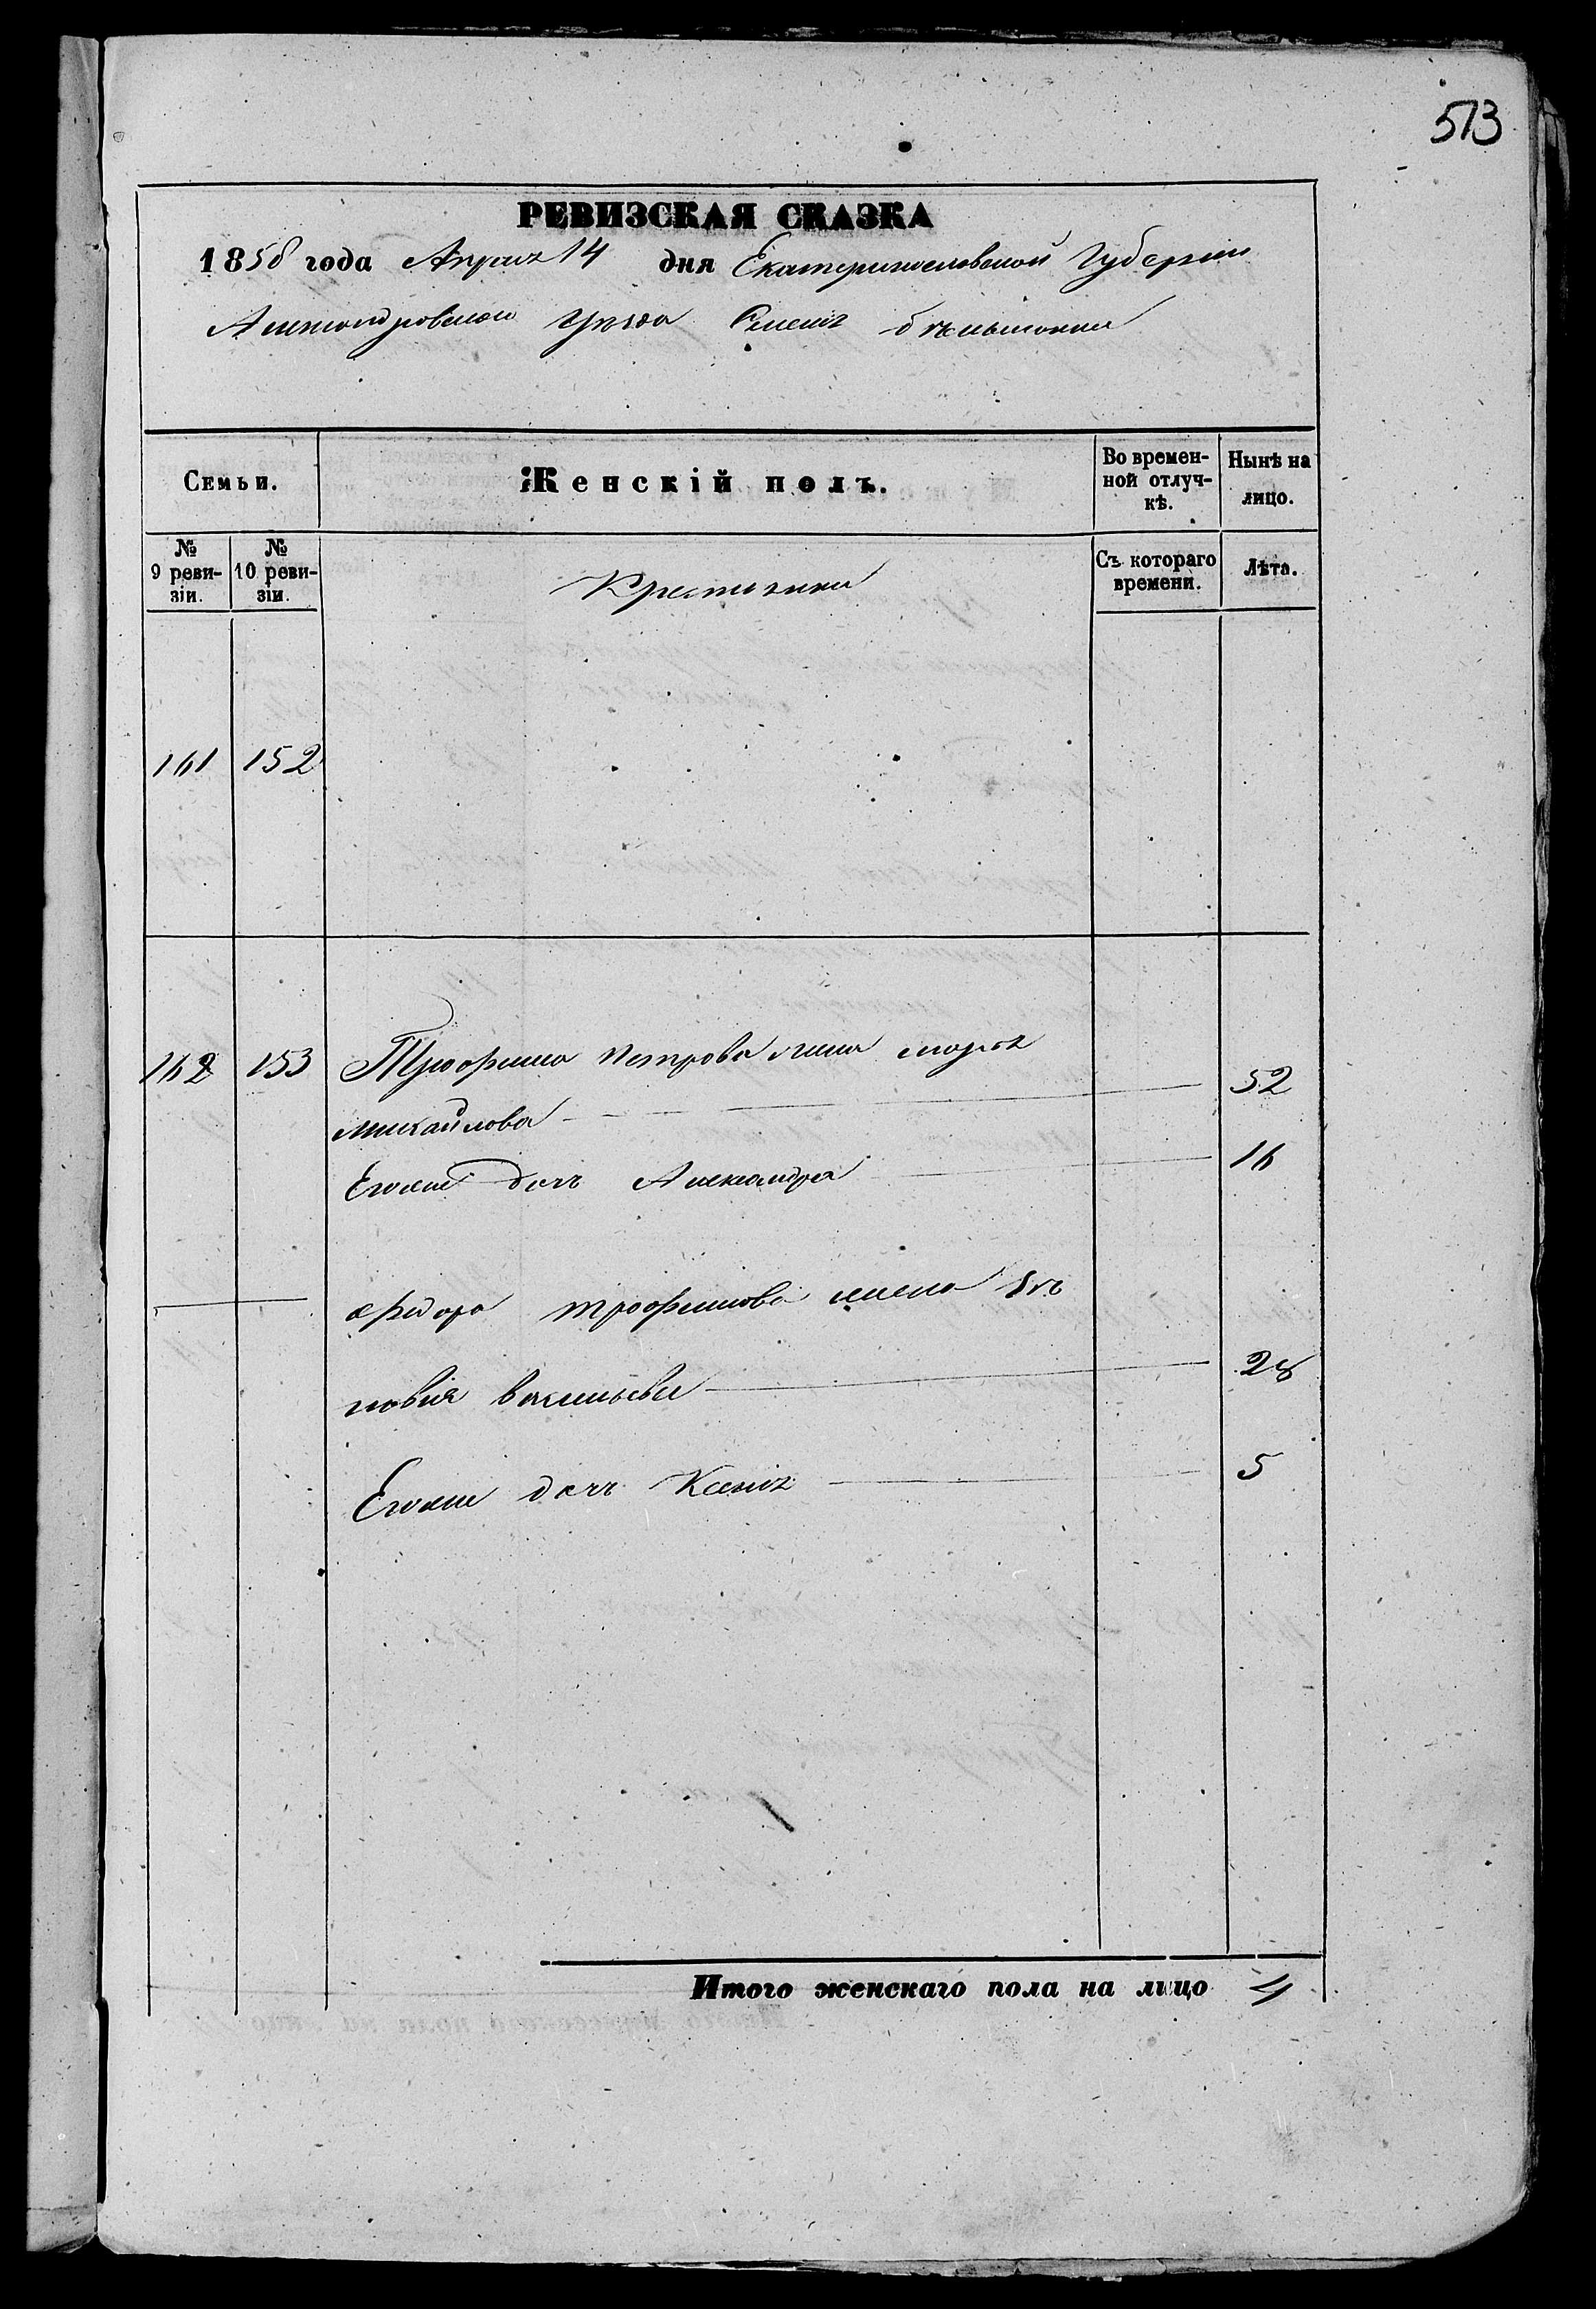 513
РЕВИЗСКАЯ СКАЗКА
1858 года Апреля 14 дня Екатеринославской Губернии
Александровского Уезда Селенъ
Семьи. Женскій полъ. Во временной отлучкѣ. Нынѣ на лицо.
№ 9 ревизіи. № 10 ревизіи. Съ котораго времени. Лѣта.
Крестьяне
161 152
162 153 Трофима Петрова жена марья
михайлова 52
Егоже дочь Александра 16
Федора трофимова жена Ев
генія васильева 28
Егоже дочь Ксенія 5
Итого женскаго пола на лицо 4